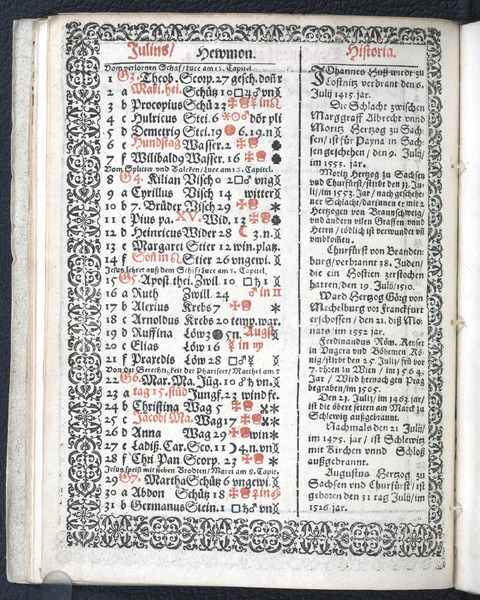 Julius/ Hewmon.
Vom verlornen Schaf/Luce am 15. Capitel.
1 g G3. Theob. Scorp. 27 gesch. doñr
2 a Mari. hei. Schütz 10 □♃♂ vn
3 b Procopius Schü 22
4 c Hulricus Stei. 6 dör pli
5 d Demetri9 Stei. 19 6.19.n
6 e Hundstag Wasser. 2
7 f Wilibaldg Wasser. 16
Vom Splitter vnd Balcken/Luce am 6. Capitel.
8 G4. Kilian Visch 0 12 □♂ vng
9 a Cyrillus Visch 14 witter
10 b 7. Brüder Visch 29
11 c Pius pa. XV. Wid. 12
12 d Heinricus Wider 28 ☾ 3.n.
13 e Margaret Stier 12 win. platz.
14 f Soñ in ♌ Stier 26 vngewi.
Jesus lehret auß dem Schif/Luce am 5. Capitel.
15 G5. Apost. thei. Zwil. 10 □♄
16 a Ruth Zwill. 24 ♂ in ♊
17 b Alexius Krebs 7
18 c Arnoldus Krebs 20 temp. war.
19 d Ruffina Löw 3 5.n. Augst
20 e Elias Löw 16 ☿ in ♍
21 f Praxedis Löw 28 □♂☿
Von der Gerechtigkeit der Phariseer/Matthei am 5
22 G6. Mar. Ma. Jüg. 10 vn.
23 a tag 15. stüd Jungf. 23 wind fe.
24 b Christina Wag 5
25 c Jacobi Ma. Wag 17
26 d Anna Wag 29 win
27 e Ladiß. Car. Sco. 11 ☽ 4.n. vn
28 f Chri Pan Scorp. 23
Jesus speist mit sieben Brodten/Marci am 8. Capit.
29 G7. Martha Schütz 6 vngewi.
30 a Abdon Schütz 18
31 b Germanus Stein. 1 □♄♂ vn
Historia.
JOhannes Huß wirdt zu
Costnitz verbrant den 6.
Julij 1415. jar.
Die Schlacht zwischen
Marggraff Albrecht vnnd
Moritz Hertzog zu Sach-
sen/ist für Payna in Sach-
sen geschehen/den 9. Julij/
im 1553. jar.
Moritz Hertzog zu Sachsen
vnd Churfürst/stirbt den 11. Ju-
lij/im 1553. Jar/nach geschehe-
ner Schlacht/darinnen er mit 2
Hertzogen von Braunschweig/
vnd andern vilen Graffen vnnd
Herrn/tödlich ist verwundet vñ
vmbkomen.
Churfürst von Branden-
burg/verbranne 38. Juden/
die ein Hostien zerstochen
hatten/den 19. Julij/1510.
Ward Hertzog Görg von
Mechelburg vor Franckfurt
erschossen/den 21. diß Mo-
nats/im 1552. jar.
Ferdinandus Röm. Keyser
in Vngern vnd Böhemen Kö-
nig/stirbt den 25. Julij/früh vor
7. vhren zu Wien/im 1564.
Jar/Wird hernach gen Prag
begraben/im 1565.
Den 21. Julij/im 1463. jar/
ist die öbere seiten am Marck zu
Schlewitz außgebrannt.
Nachmals den 21. Julij/
im 1475. jar/ist Schlewitz
mit Kirchen vnnd Schloß
außgebrannt.
Augustus Hertzog zu
Sachsen vnd Churfürst/ist
geboren den 31 tag Julij/im
1526. jar.